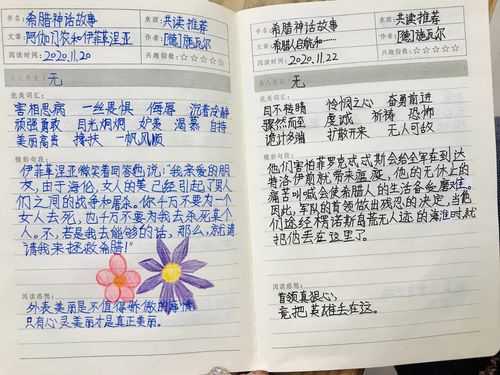 书名：希腊神话故事
来源：共读推荐
文章：阿伽门农和伊菲革涅亚
作者：[德]施瓦尔
阅读时间：2020.11.20
兴趣指数：☆☆☆☆☆
无
优美词汇：
害相思病 一丝畏惧 侮辱 沉着冷静
顽强勇敢 目光炯炯 妒贵 自持
美丽高贵 搀扶 一帆风顺
精彩句段：
伊菲革涅亚微笑着回答他说："我亲爱的朋
友，由于海伦，女人的美已经引起了男人
们之间的战争和屠杀。你千万不要为一个
女人去死，也千万不要为我去杀死某个
人。不，若是我去能够的话，那么，就请
请我来拯救希腊！"
阅读感想：
外表美丽是不值得骄傲的事情，
只有心灵美丽才是真正美丽。
书名：希腊神话故事
来源：共读推荐
文章：希腊人启航和……
作者：[德]施瓦尔
阅读时间：2020.11.22
兴趣指数：☆☆☆☆☆
无
优美词汇：
目不转睛 怜悯之心 奋勇前进
骤然而至 虔诚 祈祷 恐怖
诡计多端 扩散开来 无人可敌
精彩句段：
他们害怕菲罗克忒忒斯会给全军在到达
特洛伊前就带来瘟疫，他的无休止的
痛苦叫喊会使希腊人的生活备受磨难。
因此，军队的首领做出残忍的决定，当他
们途经楞诺斯岛荒无人迹的海滩时，就
把他丢在这里了。
阅读感想：
首领真狠心，
竟把英雄丢在这。